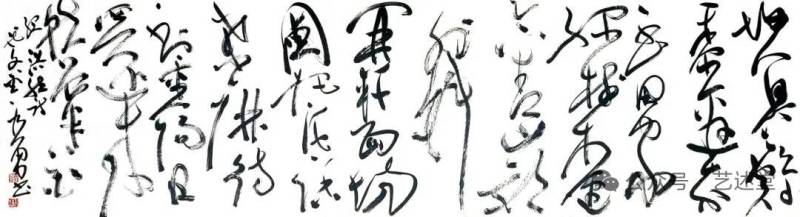 故人具鸡
黍邀我
至田家
绿树村边
合青山郭
外斜
开轩面场
圃把酒话
桑麻待
到重阳日
还来就
菊花
孟浩然诗
书
公众号 · 艺述堂